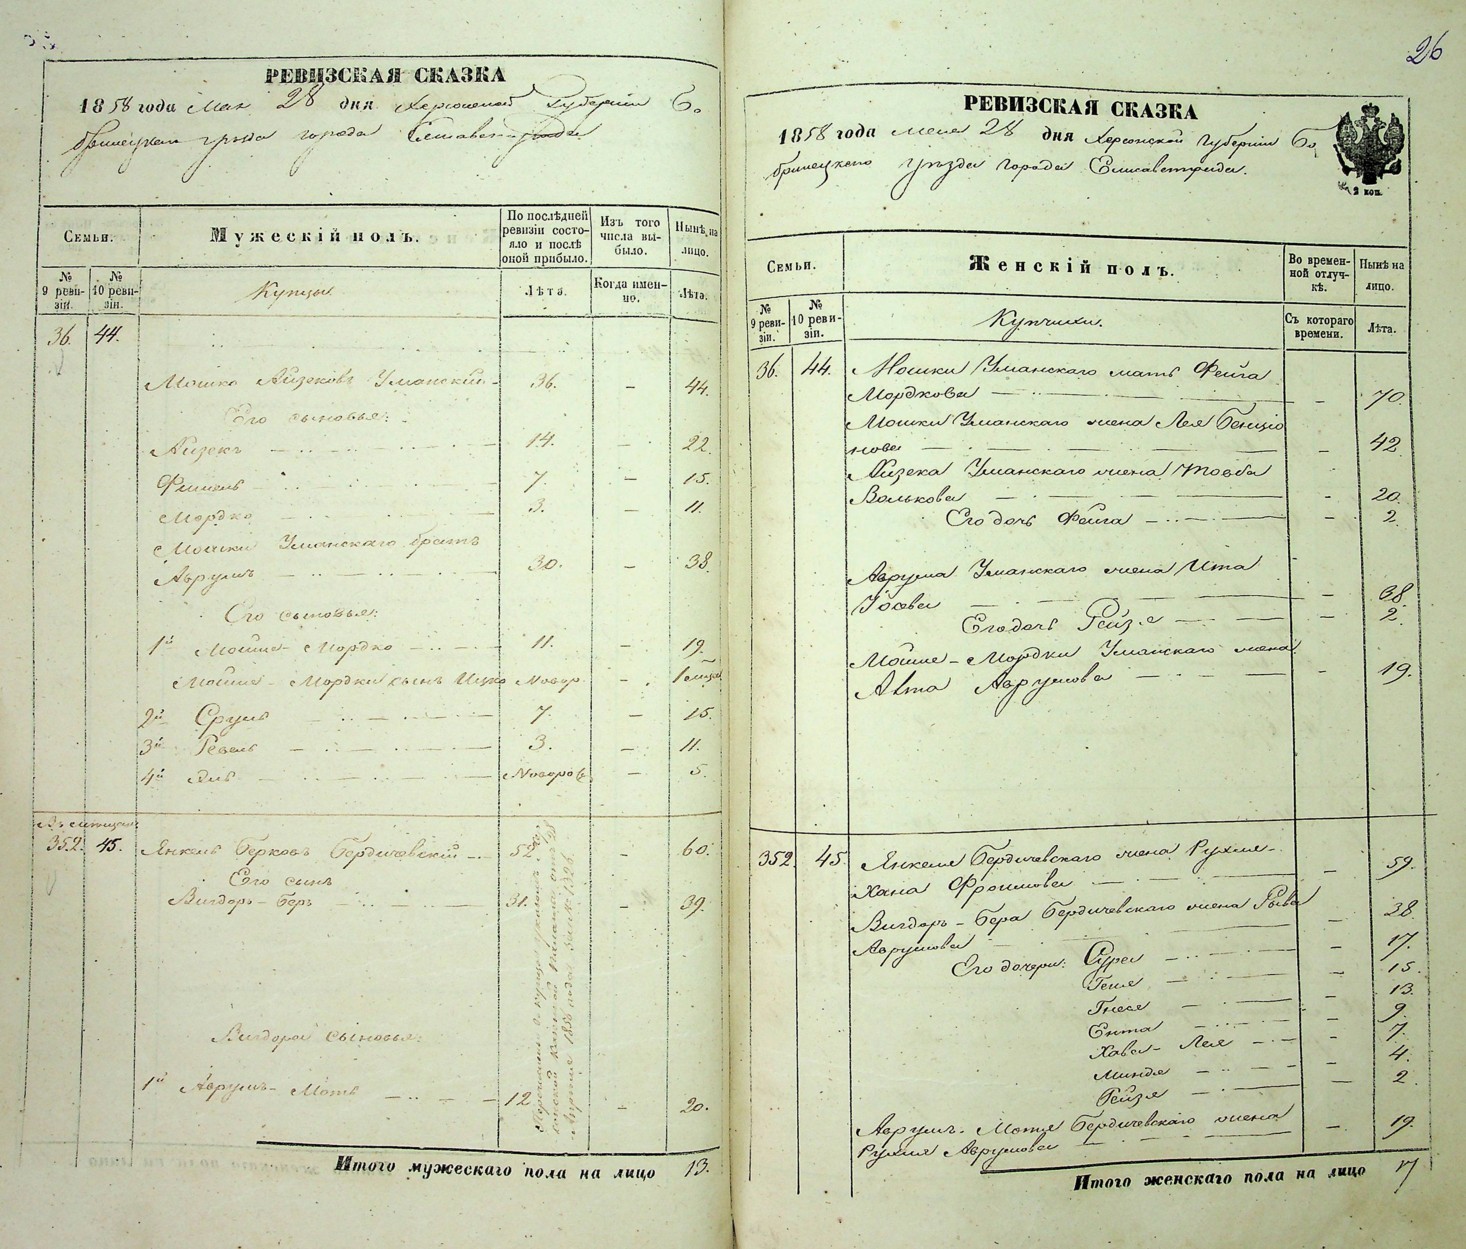 РЕВИЗСКАЯ СКАЗКА
1858 года Мая 28 дня Херсонской Губерніи Бо
бринецкаго уѣзда города Елисаветграда
Семьи.
Мужескій полъ.
По послѣдней ревизіи состояло и послѣ оной прибыло.
Изъ того числа выбыло.
Нынѣ на лицо.
№ 9 ревизіи.
№ 10 ревизіи.
Купцы
Лѣта.
Когда именно.
Лѣта.
36. 44.
Мошко Айзековъ Уманскій - 36. - 44.
Его сыновья:
Айзекъ 14. - 22.
Фишель 7. - 15.
Мордко 3. - 11.
Мошки Уманскаго братъ
Аврумъ 30. - 38.
Его сыновья:
1й Мойше-Мордко 11. - 19.
Мойше-Мордки сынъ Ицко Новор. -
2й Сруль 7. - 15.
3й 3. - 11.
4й Новорож - 5.
352. 45. Янкель Берковъ Бердичевскій 52. - 60.
Его сынъ
Вигдоръ-Беръ 31. - 39.
Вигдора сыновья:
1й Аврумъ-Мотя 12 - 20.
Итого мужескаго пола на лицо 13.
26
РЕВИЗСКАЯ СКАЗКА
1858 года Мая 28 дня Херсонской Губерніи Бо
бринецкаго уѣзда города Елисаветграда.
2 коп.
Семьи.
Женскій полъ.
Во временной отлучкѣ.
Нынѣ на лицо.
№ 9 ревизіи.
№ 10 ревизіи.
Купчихи.
Съ котораго времени.
Лѣта.
36. 44. Мошки Уманскаго мать Фейга
Мордкова - 70.
Мошки Уманскаго жена Лея Бенціо
нова - 42
Айзека Уманскаго жена Товба
Волькова - 20.
Его дочь Фейга - 2.
Аврума Уманскаго жена Ита
Іосева - 38.
Его дочь Рейзя - 2.
Мойше-Мордки Уманскаго жена
Аврумова - 19.
352. 45. Янкеля Бердичевскаго жена Рухля-
Хана Фроимова - 59.
Вигдоръ-Бера Бердичевскаго жена Рыва
Аврумова - 38.
Его дочери: Сура - 17.
Геня - 15.
Гнеся - 13.
Ента - 9.
Хава-Лея - 7.
Миндя - 4.
Рейзя - 2.
Аврумъ-Мотя Бердичевскаго жена
Рухля Аврумова - 19.
Итого женскаго пола на лицо 17